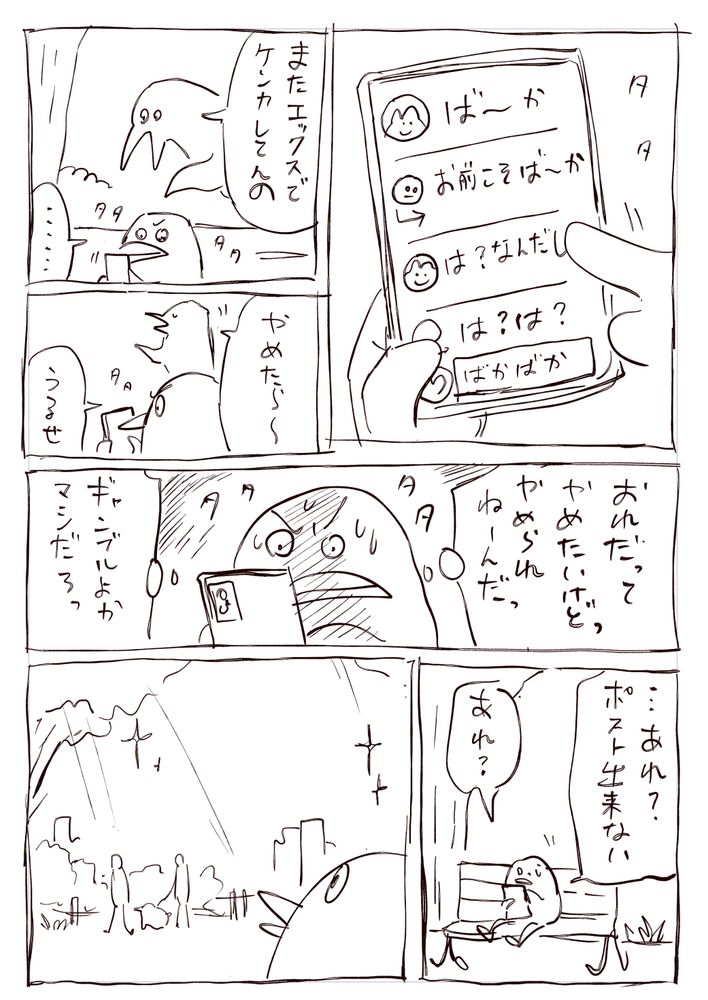 タ
タ
ば〜か
お前こそば〜か
は？なんだし
は？は？
ばかばか
またエックスで
ケンカしてんの
タタ
タタ
……
やめたら〜
タタ
うるせ
おれだって
やめたいけどっ
やめられ
ねーんだっ
タタ
タタ
ギャンブルよか
マシだろっ
…あれ？
ポスト出来ない
あれ？